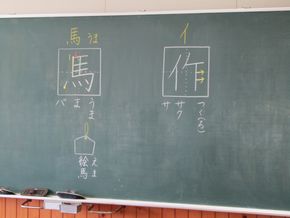 馬 うま
馬
うま
ま
バ
絵馬
えま
イ
作
つく(る)
サク
サ